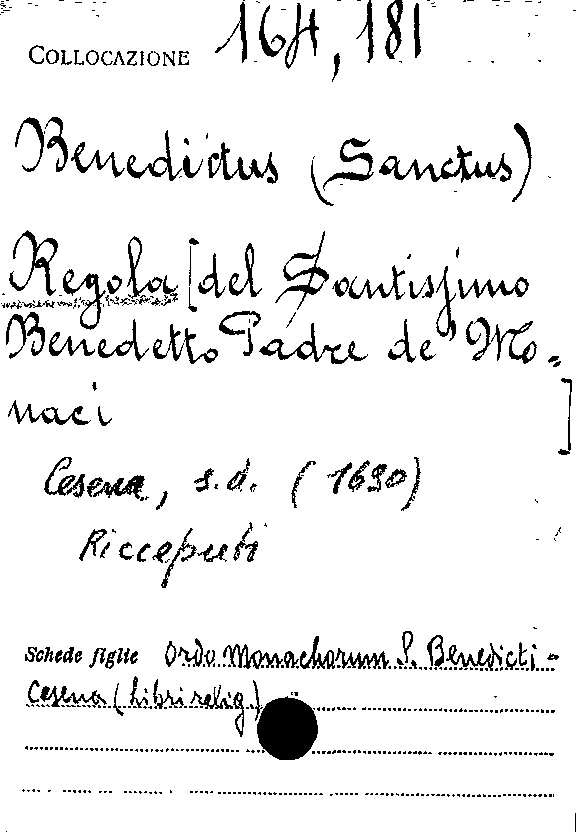 COLLOCAZIONE 164, 181
Benedictus (Sanctus)
Regola [del Santissimo
Benedetto Padre de' Mo=
naci ]
Cesena, s.d. (1690)
Ricceputi
Schede figlie Ordo Monachorum S. Benedicti -
Cesena (Libri relig.)